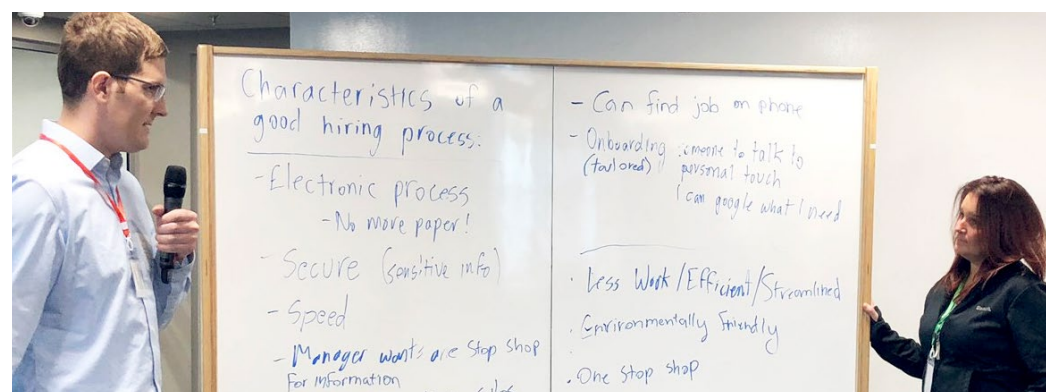 Characteristics of a
good hiring process:
- Electronic process
- No more paper!
- Secure (sensitive info)
- Speed
- Manager wants one stop shop
For information
- Can find job on phone
- Onboarding : someone to talk to
(tailored) personal touch
I can google what I need
. Less Work/Efficient/Streamlined
. Environmentally Friendly
. One stop shop